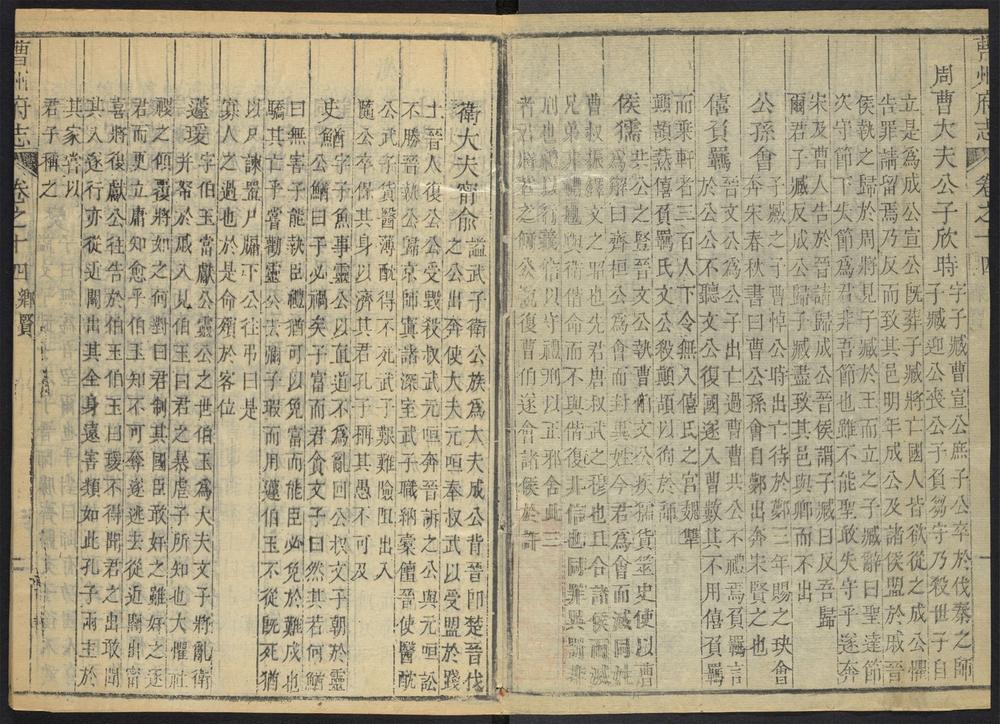 曹州府志 卷之十四
周曹大夫公子欣時 字子臧曹宣公庶子公卒於伐秦之師
子臧迎公喪公子負芻守乃殺世子自
立是爲成公宣公旣葬子臧將亡國人皆欲從之成公懼
告罪請留焉乃反而致其邑明年成公及諸侯盟於戚晉
侯執之歸於周將見子臧於王而立之子臧辭曰聖達節
次守節下失節爲君非吾節也雖不能聖敢失守乎遂奔
宋及曹人告於晉請歸成公晉侯謂子臧曰反吾歸
爾君子臧反成公歸子臧盡致其邑與卿而不出
公孫會 子臧之
奔宋春秋書曰曹公孫會自鄸出奔宋賢之也
僖負羈 晉文公子出亡過曹共公不禮焉負羈言
於公公不聽文公復國遂入曹數其不用僖負羈
而乘軒者三百人下令無入僖氏之宮魏犫
顚頡爇僖負羈氏文公殺顚頡以徇於師
侯獳 共公之豎晉文公執曹伯文公疾獳貨筮史使以曹
爲解曰齊桓公爲會而封異姓今君爲會而滅同姓
曹叔振鐸文之昭也先君唐叔武之穆也且合諸侯而滅
兄弟非禮也與衞偕命而不與偕復非信也同罪異罰非
刑也禮以行義信以守禮刑以正邪舍此三
者君將若之何公說復曹伯遂會諸侯於許
衛大夫甯俞 謚武子衛公族爲大夫成公背晉卽楚晉伐
之公出奔使大夫元咺奉叔武以受盟於踐
土晉人復公公受毀殺叔武元咺奔晉訴之公與元咺訟
不勝晉執公歸京師寘諸深室武子職納橐饘晉使醫酖
公武子貨醫薄酖得不死武子艱難險阻出入
隨公卒保其身以濟其君孔子稱其愚不可及
史鰌 字子魚事靈公以直道不爲亂回公叔文子朝於靈
公鰌曰子必禍矣子富而君貪文子曰然其若何鰌
曰無害子能執臣禮猶可以免富而能臣必免於難戍也
驕其亡乎嘗勸靈公去彌子瑕而用蘧伯玉不從旣死猶
以尸諫置尸牖下公往弔曰是
寡人之過也於是命殯於客位
蘧瑗 字伯玉當獻公靈公之世伯玉爲大夫文子將亂衛
并帑於戚入見伯玉曰君之暴虐子所知也大懼社
稷之傾覆將如之何對曰君制其國臣敢奸之雖奸之遂
君而更立庸知愈乎伯玉知不可奪遂逃去從近關出甯
喜將復獻公往告於伯玉伯玉曰瑗不得聞君之出敢聞
其入遂行亦從近關出其全身遠害類如此孔子兩主於
其家嘗以
君子稱之
曹州府志 卷之十四 鄉賢 一